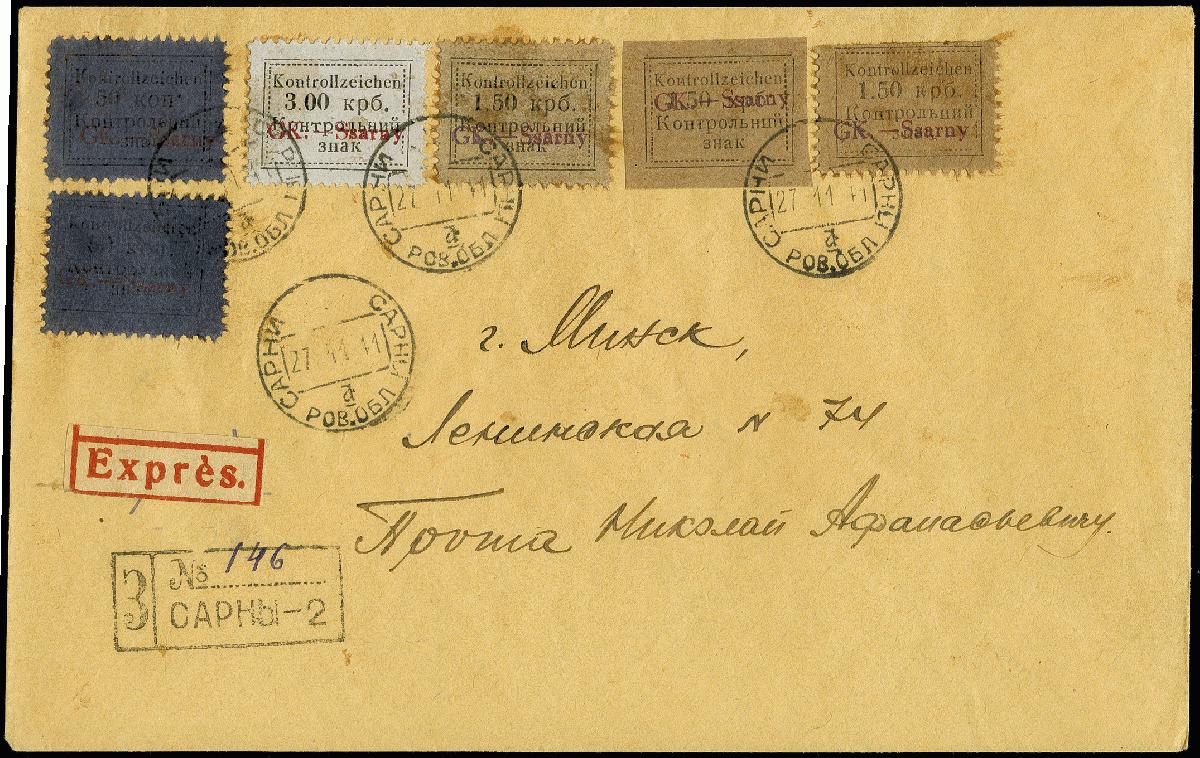 Kontrollzeichen
50 коп.
Контрольний
знак
GK. — Ssarny
Kontrollzeichen
3.00 крб.
Контрольний
знак
GK. — Ssarny
Kontrollzeichen
1.50 крб.
Контрольний
знак
GK. — Ssarny
Kontrollzeichen
1.50 крб.
Контрольний
знак
GK. — Ssarny
Kontrollzeichen
1.50 крб.
Контрольний
GK. — Ssarny
Kontrollzeichen
Контрольний
РОВ.ОБЛ
САРНИ САРНЫ
27 11 41
а
РОВ.ОБЛ
САРНИ САРНЫ
27 11 41
а
РОВ.ОБЛ
САРНИ САРНЫ
27 11 41
а
РОВ.ОБЛ
г. Минск,
Ленинская № 74
Николай Афанасьевичу.
Exprès.
З № 146
САРНЫ-2